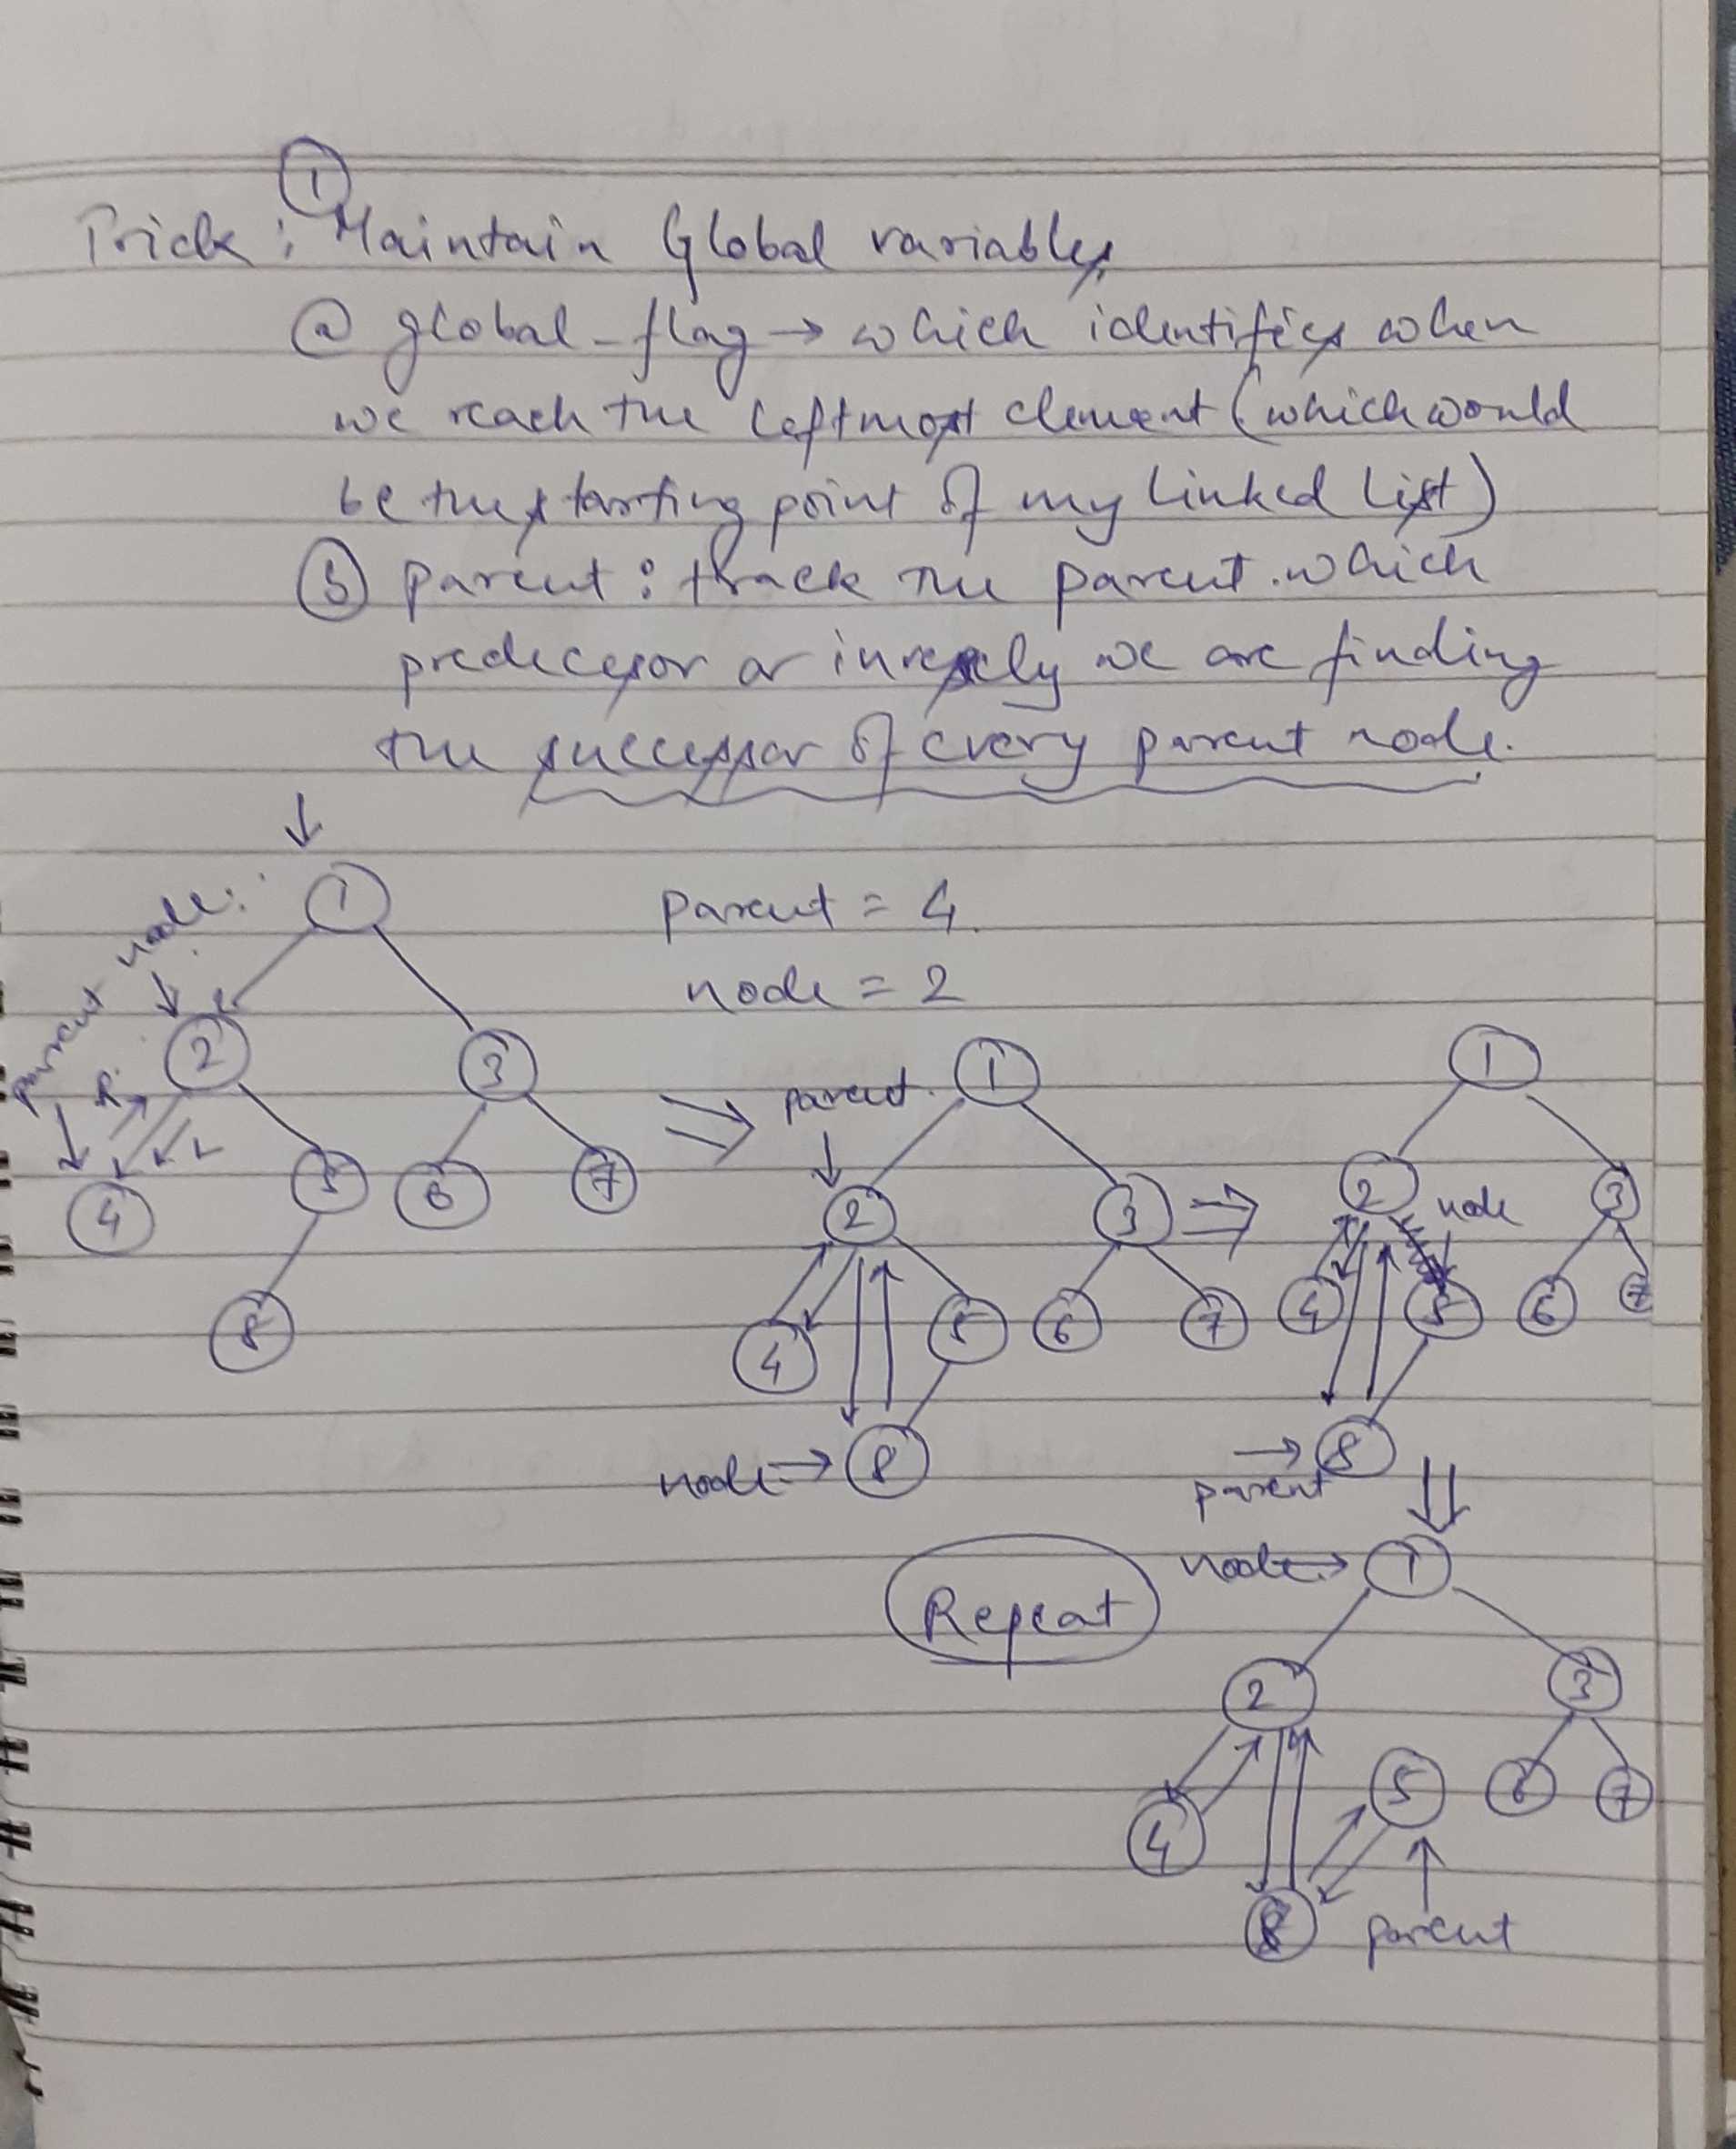 ①
Trick : Maintain Global variables,
ⓐ global_flag → which identifies when
we reach the leftmost element (which would
be the starting point of my linked list)
ⓑ parent : track the parent. which
predecessor or inversely we are finding
the successor of every parent node.
1
parent node:
parent = 4.
node = 2
2 3
R.
L
4 5 6 7
8
⇒
parent.
1
2 3
4 5 6 7
node → 8
⇒
1
2 node 3
4 5 6 7
→ 8
parent
Repeat
node → 1
2 3
4 5 6 7
8 parent